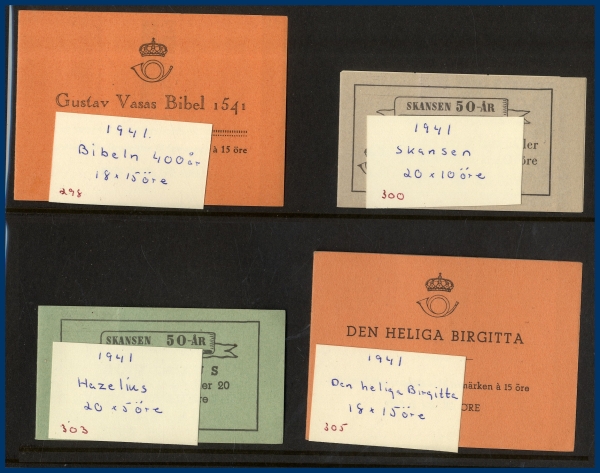 Gustav Vasas Bibel 1541
à 15 öre
1941.
Bibeln 400 år
18 x 15 öre
298
SKANSEN 50-ÅR
öre
1941
Skansen
20 x 10 öre
300
SKANSEN 50-ÅR
S
er 20
re
1941
Hazelius
20 x 5 öre
303
DEN HELIGA BIRGITTA
märken à 15 öre
ÖRE
1941
Den heliga Birgitta
18 x 15 öre
305